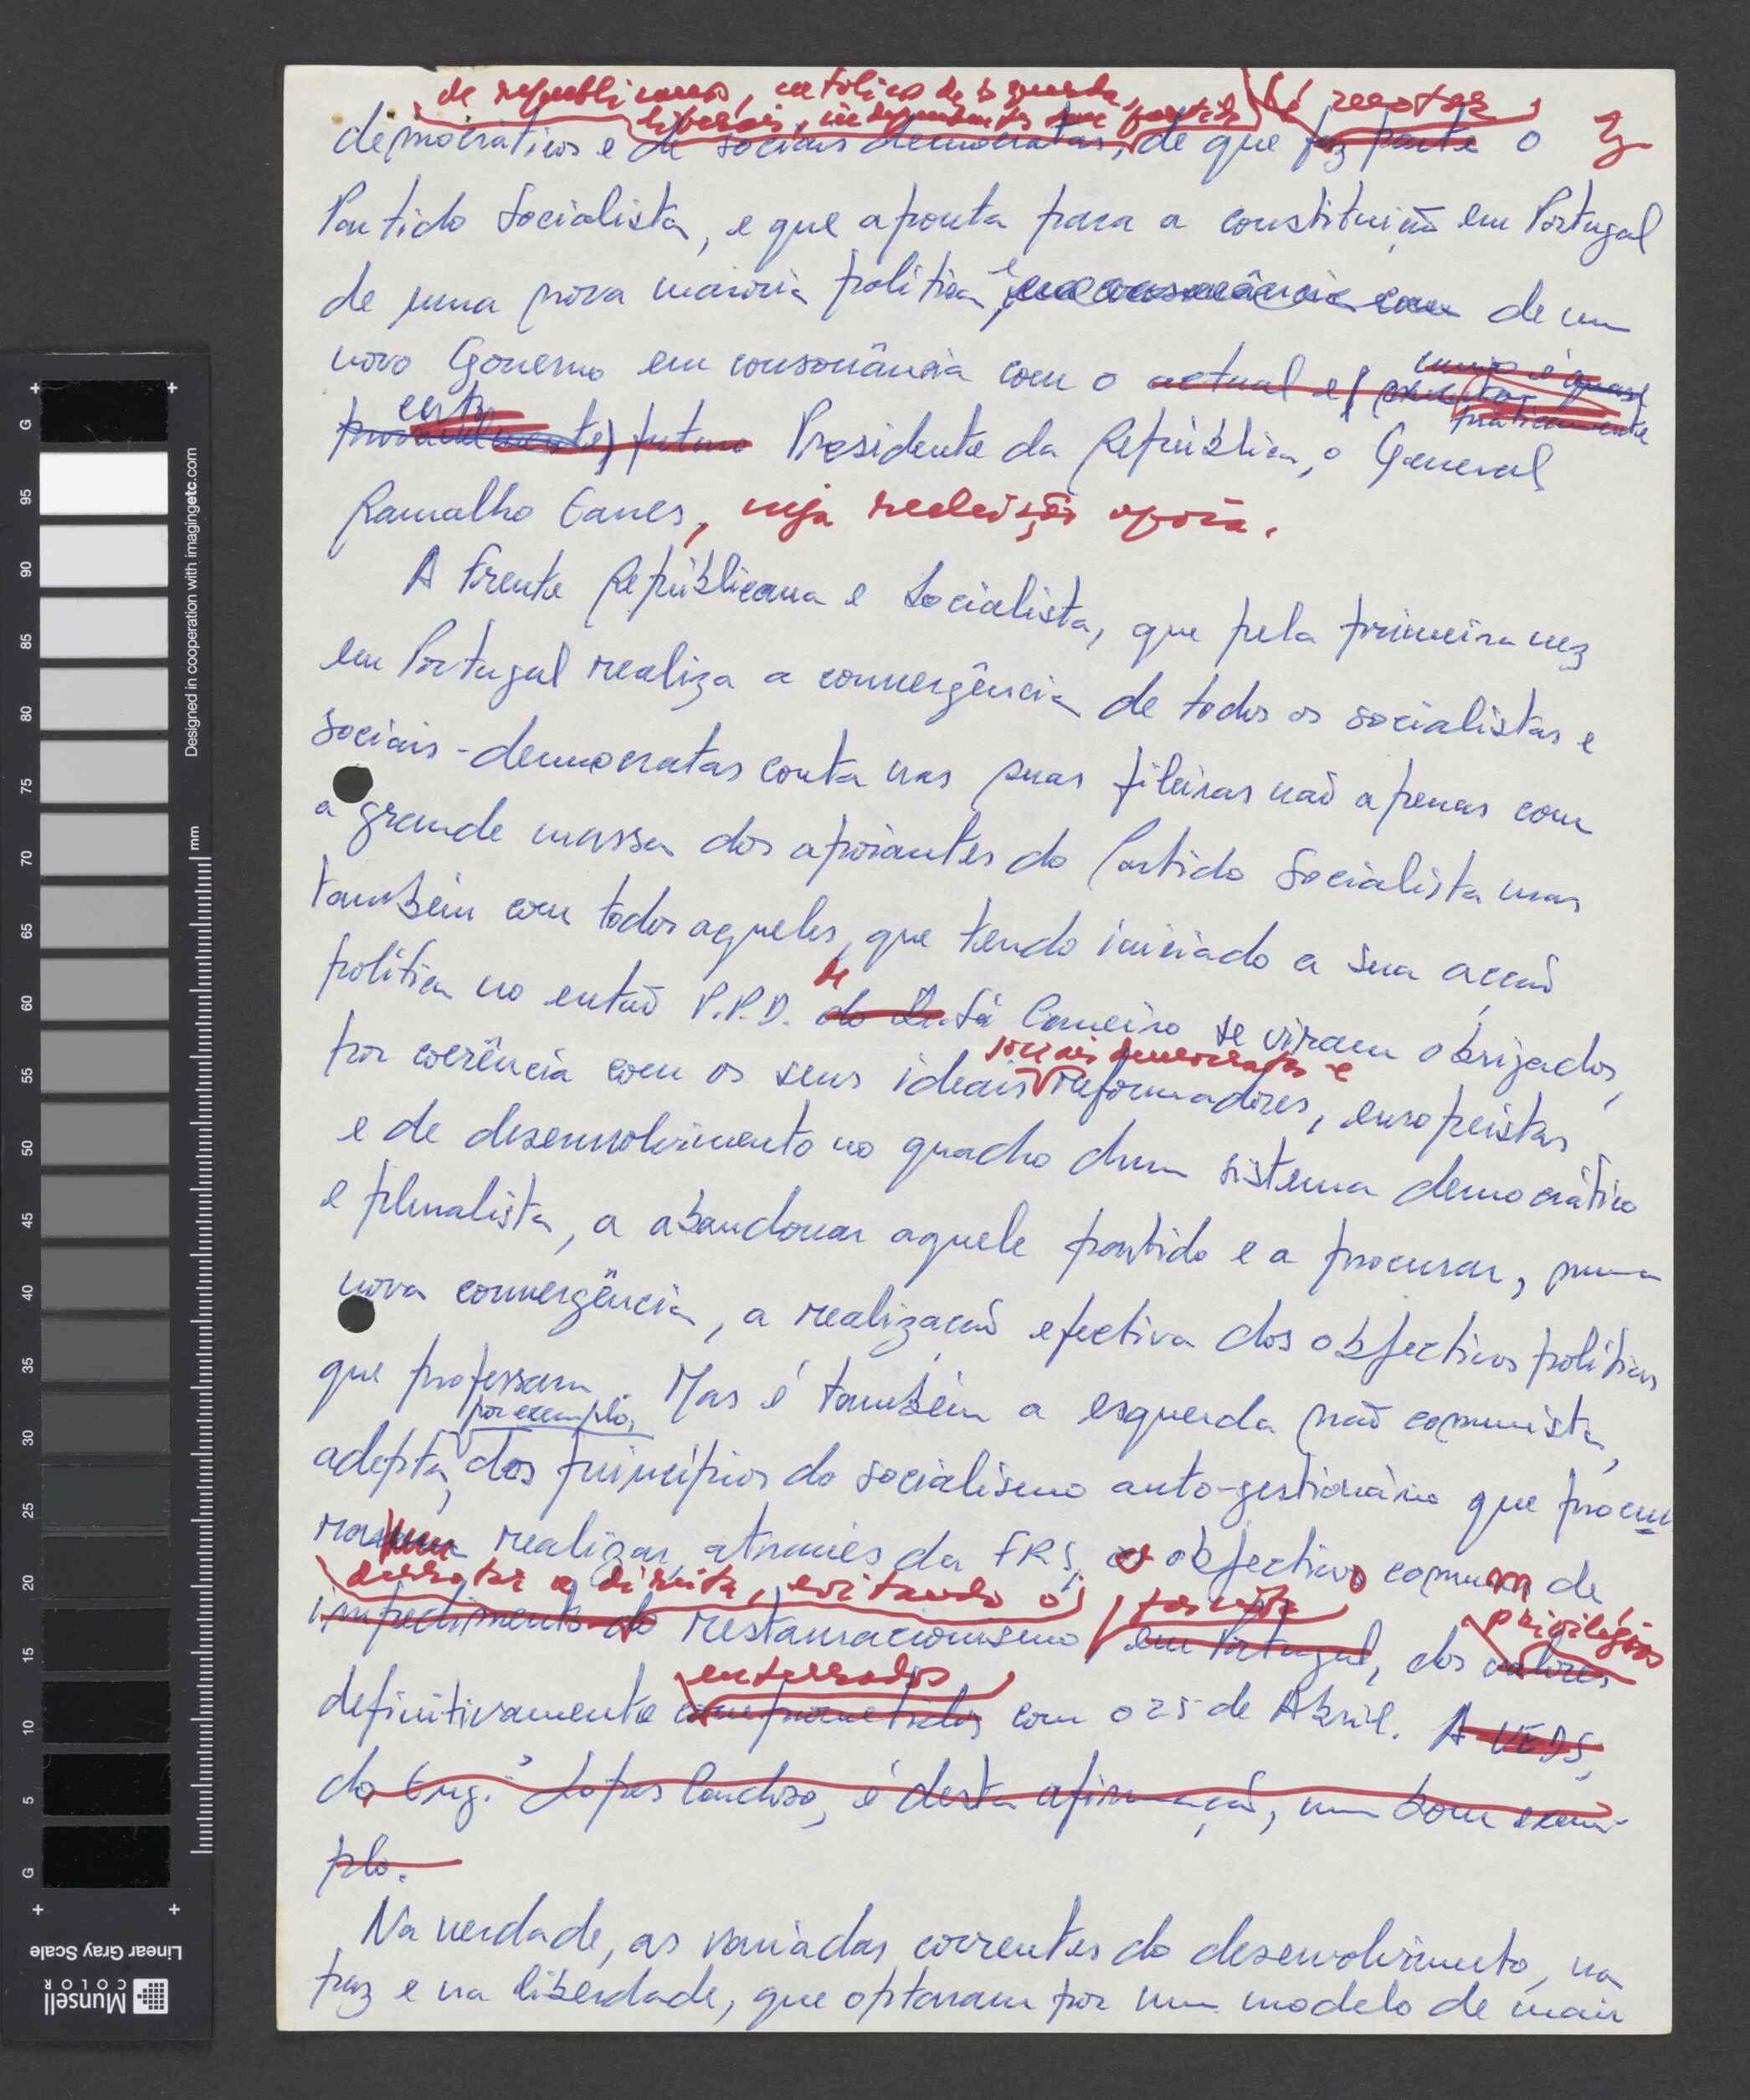 de republicanos, católicos de esquerda,
liberais, independentes sem partido é reator
democráticos e de sociais democratas, de que faz parte o
Partido Socialista, e que aponta para a constituição em Portugal
de uma nova maioria política e em consonância com de um
novo Governo em consonância com o actual e
cujo é quase
praticamente
certo
provavelmente) futuro Presidente da República, o General
Ramalho Eanes, cuja reeleição apoia.
A Frente Repúblicana e Socialista, que pela primeira vez
em Portugal realiza a convergência de todos os socialistas e
sociais-democratas conta nas suas fileiras não apenas com
a grande massa dos apoiantes do Partido Socialista mas
também com todos aqueles, que tendo iniciado a sua acção
de
política no então P.P.D. do Dr. Sá Carneiro se viram obrigados,
sociais democratas e
por coerência com os seus ideais reformadores, europeistas
e de desenvolvimento no quadro dum sistema democrático
e pluralista, a abandonar aquele partido e a procurar, numa
nova convergência, a realização efectiva dos objectivos políticos
que professam. Mas é também a esquerda não comunista,
por exemplo,
adepta, dos princípios do socialismo auto-gestionário que procu
ram realizar, através da FRS, o objectivo comum de
derrotar a direita, evitando o
impedimento do restauracionismo em Portugal, dos valores
privilégios
enterrados
definitivamente comprometidos com o 25 de Abril. A UEDS,
do Eng.º Lopes Cardoso, é desta afirmação, um bom exem-
plo.
Na verdade, as variadas correntes do desenvolvimento, na
paz e na liberdade, que optaram por um modelo de mais
Designed in cooperation with imagingetc.com
mm
G 95 90 85 80 75 70 65 60 55 50 45 40 35 30 25 20 15 10 5 G
Linear Gray Scale
Munsell COLOR